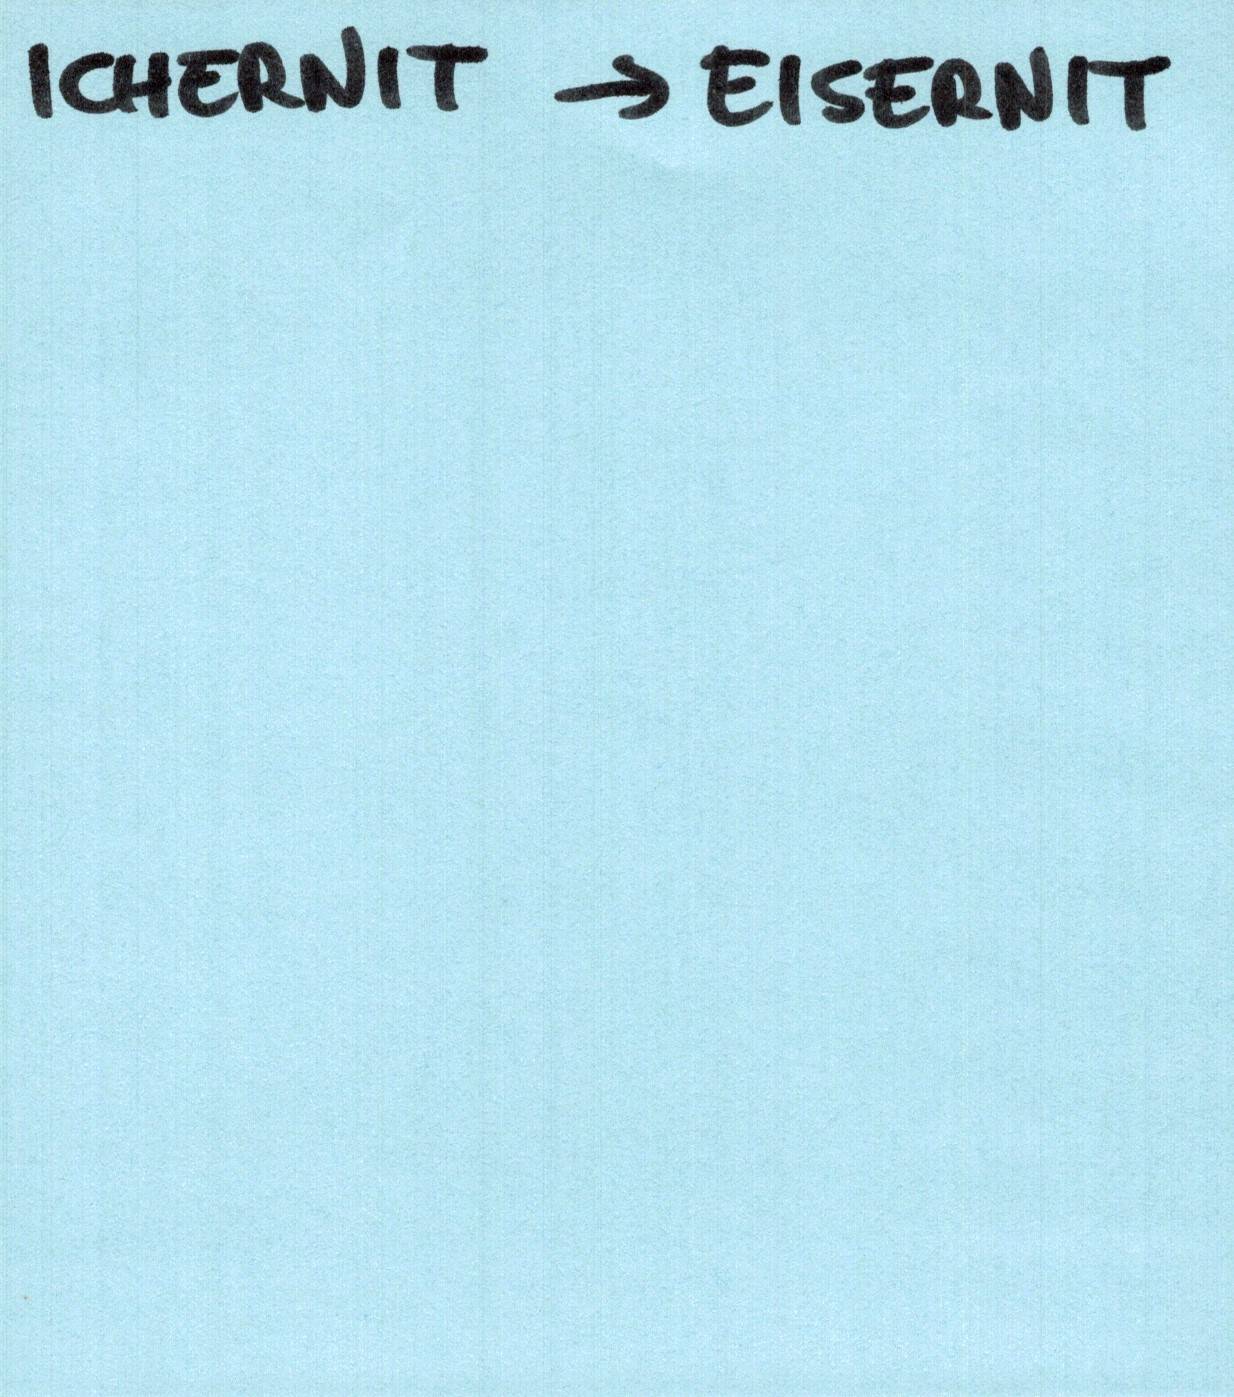 ICHERNIT → EISERNIT